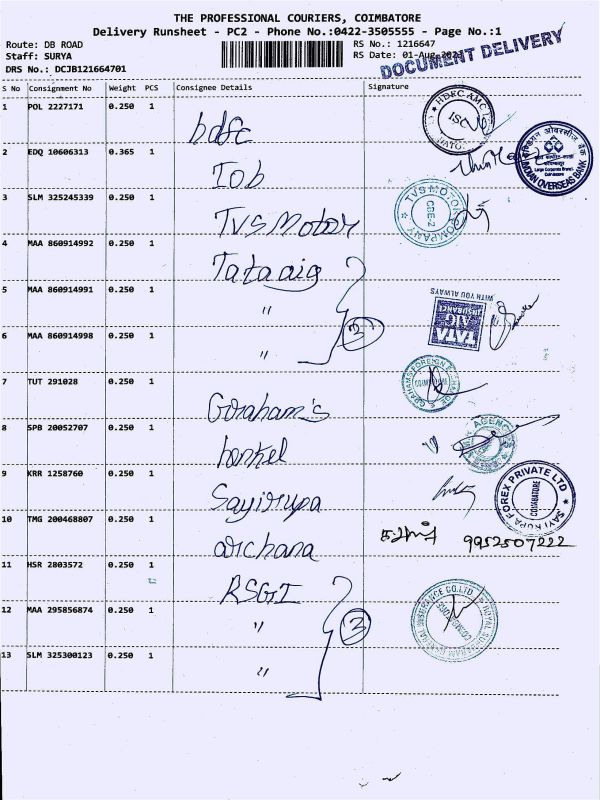 THE PROFESSIONAL COURIERS, COIMBATORE
Delivery Runsheet - PC2 - Phone No.:0422-3505555 - Page No.:1
Route: DB ROAD
RS No.: 1216647
Staff: SURYA
RS Date: 01-Aug-
DRS No.: DCJB121664701
DOCUMENT DELIVERY
S No Consignment No Weight PCS Consignee Details Signature
1 POL 2227171 0.250 1 hdfc
HDFC AMC
2 EDQ 10606313 0.365 1 Iob
INDIAN OVERSEAS BANK
3 SLM 325245339 0.250 1 TVS Motor
TVS MOTOR COMPANY
CBE-2
4 MAA 860914992 0.250 1 Tataaig
5 MAA 860914991 0.250 1 "
WITH YOU ALWAYS
TATA AIG INSURANCE
6 MAA 860914998 0.250 1 " 3
7 TUT 291028 0.250 1 Goraham's
8 SPB 20052707 0.250 1 henkel
9 KRR 1258760 0.250 1 Sayirupa
SAYI RUPA FOREX PRIVATE LTD
COIMBATORE
10 TMG 200468807 0.250 1 archana
9952507222
11 HSR 2803572 0.250 1 RSGI
12 MAA 295856874 0.250 1 " 3
ROYAL SUNDARAM GENERAL INSURANCE CO.LTD
13 SLM 325300123 0.250 1 "